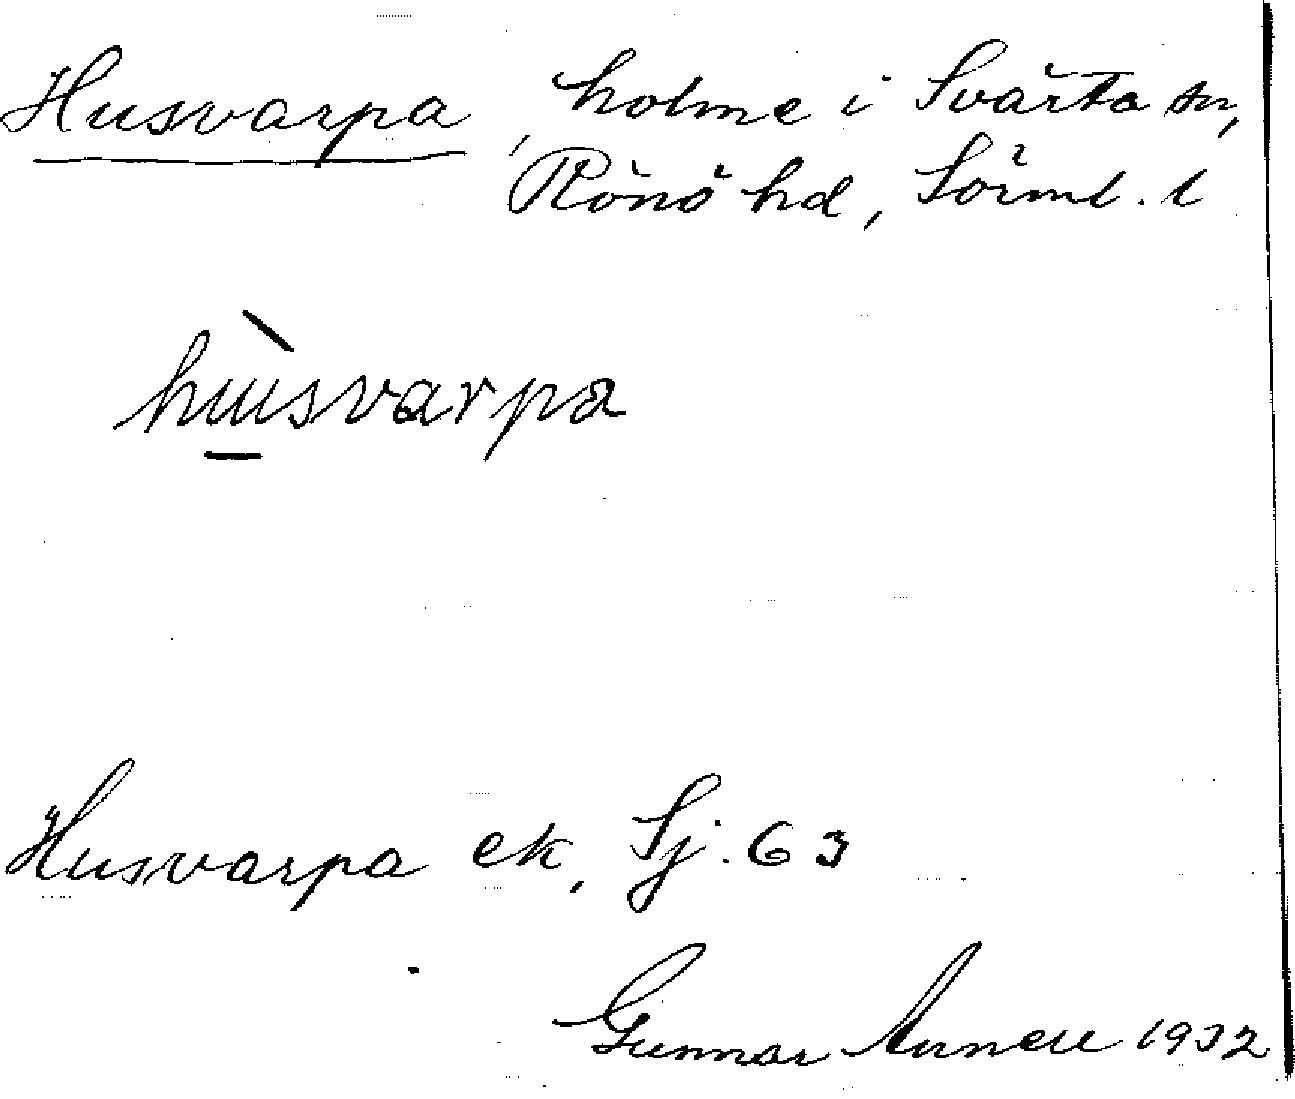 Husvarpa, holme i Svärta sn,
Rönö hd, Sörml. l
hùsvarpa
Husvarpa ek, Sj. 63
Gunnar Annell 1932